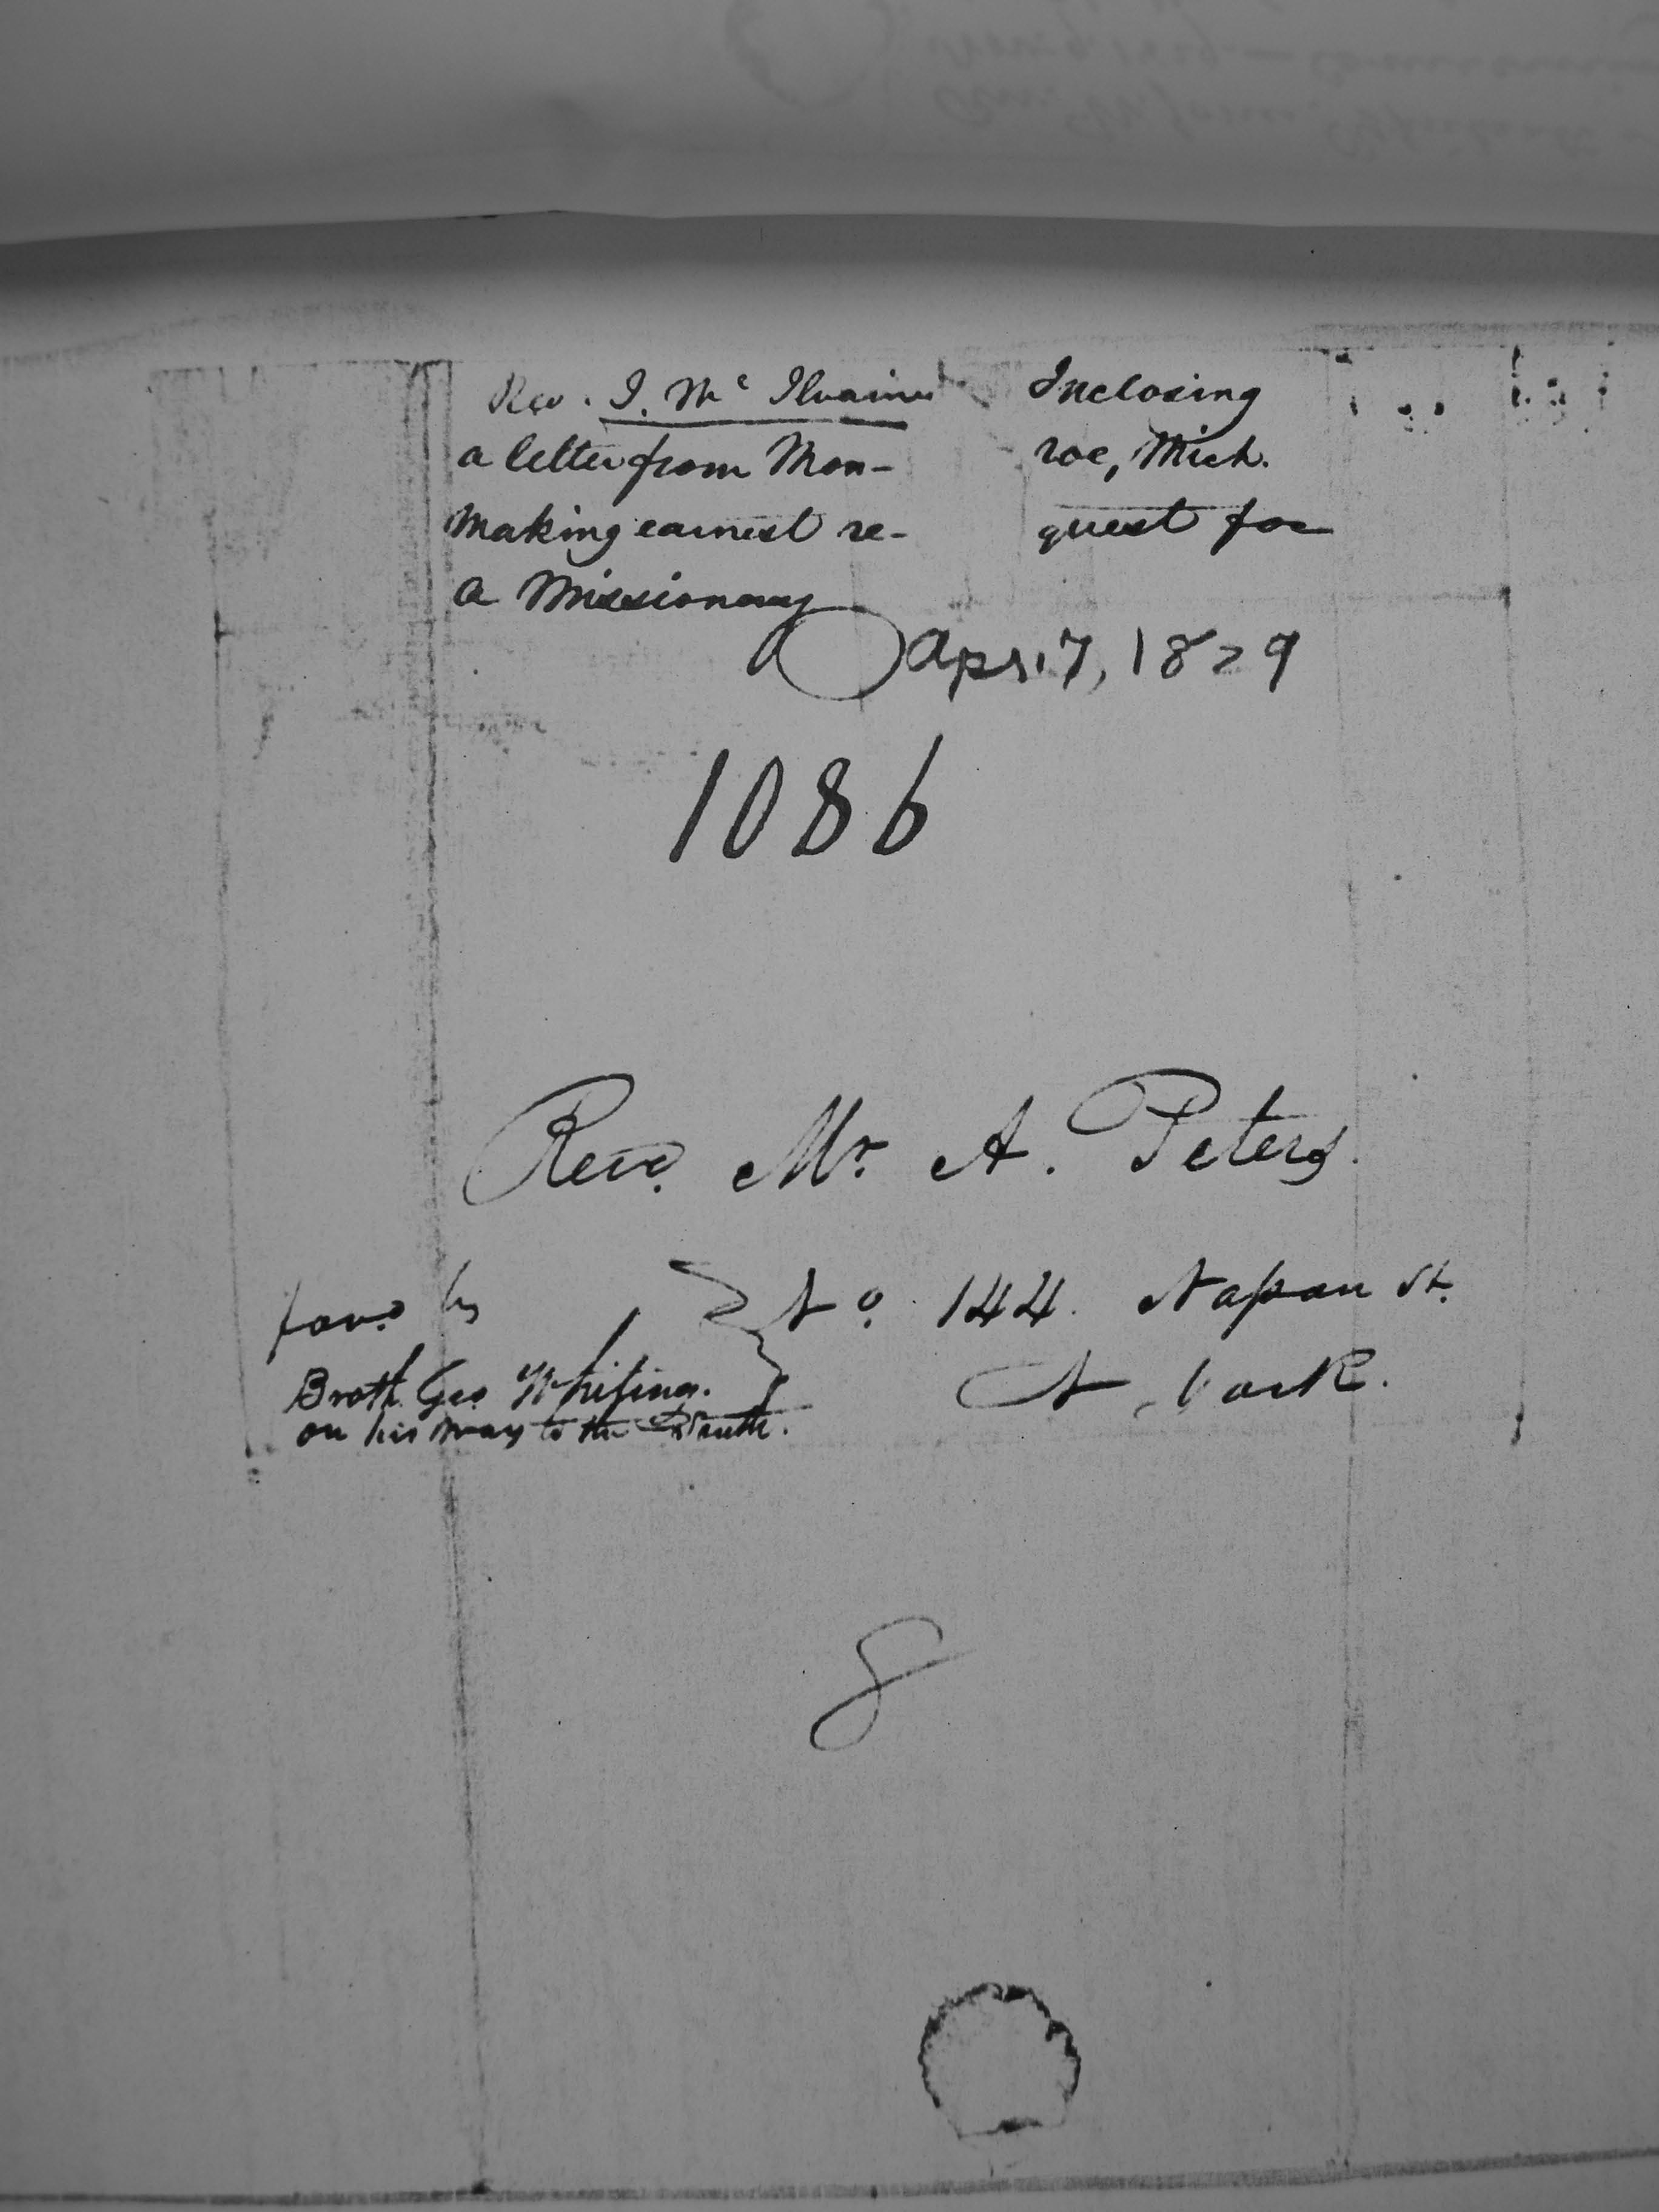 Rev. I. Mc Ilvaine Inclosing
a letter from Mon- roe, Mich.
making earnest re- quest for
a Missionary
Apr. 7, 1829
1086
Revd. Mr. A. Peters.
favd. by
No. 144. Nassau St.
Broth. Geo. Whiting.
N. York.
on his way to the South.
8